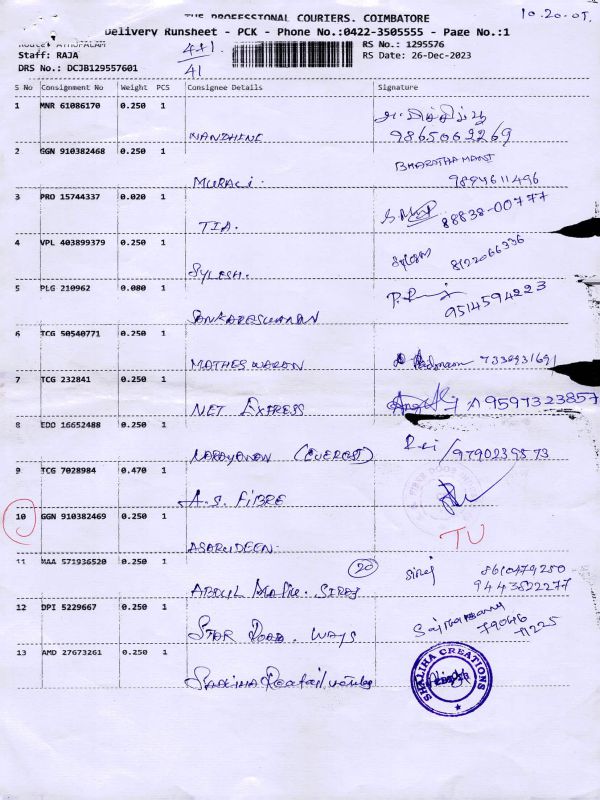 THE PROFESSIONAL COURIERS. COIMBATORE
10.20.05.
Delivery Runsheet - PCK - Phone No.:0422-3505555 - Page No.:1
Staff: RAJA
DRS No.: DCJB129557601
4+1
41
RS No.: 1295576
RS Date: 26-Dec-2023
S No Consignment No Weight PCS Consignee Details Signature
1 MNR 61086170 0.250 1
NANDHINI 9865069269
2 GGN 910382468 0.250 1
MURALI. BHARATHAMANI 9894611496
3 PRO 15744337 0.020 1
TIA. 88838-00777
4 VPL 403899379 0.250 1
SYLESH. 8122066336
5 PLG 210962 0.080 1
SANKARESWARAN 9514594223
6 TCG 50540771 0.250 1
MATHESWARAN
7 TCG 232841 0.250 1
NET EXPRESS 9597323857
8 EDO 16652488 0.250 1
NARAYANAN (EVEREST) 9790239573
9 TCG 7028984 0.470 1
A.S. FIBRE
10 GGN 910382469 0.250 1
ASARUDEEN. TU
11 MAA 571936520 0.250 1
20
ABDUL siraj 8610479250
9443822277
12 DPI 5229667 0.250 1
STAR ROAD. WAYS 79046
11225
13 AMD 27673261 0.250 1
SHALIHA CREATIONS